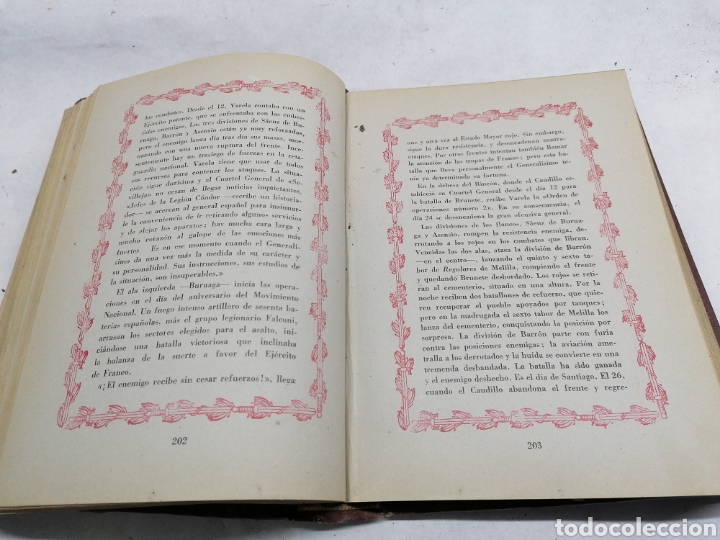 los combates». Desde el 12, Varela contaba con un
Ejército potente, que se enfrentaba con los
enemigas. Las tres divisiones de Sáenz de Bu-
ruaga, Barrón y Asensio están ya muy reforzadas,
pero el enemigo lanza día tras día sus masas,
con una nueva ruptura del frente. Incesan-
hay un trasiego de fuerzas en la reta-
guardia nacional. Varela tiene que usar de todos
sus recursos para contener los ataques. La situa-
ción sigue durísima y el Cuartel General de «Se-
villeja» no cesan de llegar noticias inquietantes.
«Jefes de la Legión Cóndor —escribe un historia-
dor— se acercan al general español para insinuar-
le la conveniencia de ir retirando algunos servicios
y de alejar los aparatos; hay mucha cara larga y
mucho corazón al galope de las emociones más
fuertes.» Es en ese momento cuando el Generalí-
simo da una vez más la medida de su carácter y
su personalidad. Sus instrucciones, sus estudios de
la situación, son insuperables.»
El ala izquierda —Buruaga— inicia las opera-
ciones en el día del aniversario del Movimiento
Nacional. Un fuego intenso artillero de sesenta ba-
terías españolas, más el grupo legionario Falconi,
arrasan los sectores elegidos para el asalto, ini-
ciándose una batalla victoriosa que inclinaba
la balanza de la suerte a favor del Ejército
de Franco.
«¡El enemigo recibe sin cesar refuerzos!», llega
202
una y otra vez al Estado Mayor rojo. Sin embargo,
sigue la dura resistencia, y menudean los contra-
ataques. Por otros frentes intentan también llamar
la atención de las tropas de Franco; pero esta ba-
talla que lleve personalmente el Generalísimo tenía
ya determinado su fortuna.
En la dehesa del Rincón, donde el Caudillo es-
tableció su Cuartel General desde el día 12 para
la batalla de Brunete, recibe Varela la «Orden de
operaciones número 2». En su consecuencia, el
día 24 se desencadena la gran ofensiva general.
Las divisiones de los flancos, Sáenz de Burua-
ga y Asensio, rompen la resistencia enemiga, de-
rrotando a los rojos en los combates que libran.
Vencidas las dos alas, ataca la división de Barrón
—en el centro—, lanzando el quinto y sexto tabor
de Regulares de Melilla, rompiendo el frente
y quedando Brunete desbordado. Los rojos se refu-
gian en el cementerio, situado en una altura. Por la
noche reciben dos batallones de refuerzo, que quieren
recuperar el pueblo apoyados por tanques;
pero en la madrugada el sexto tabor de Melilla los
lanza del cementerio, conquistando la posición por
sorpresa. La división de Barrón parte con furia
contra las posiciones enemigas; la aviación ametra-
lla a los derrotados y la huída se convierte en una
tremenda desbandada. La batalla ha sido ganada
y el enemigo deshecho. Es el día de Santiago. El 26,
cuando el Caudillo abandona el frente y regre-
203
todocoleccion